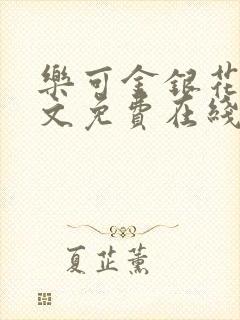 樂可金銀花
文免費在綫
夏芷薰